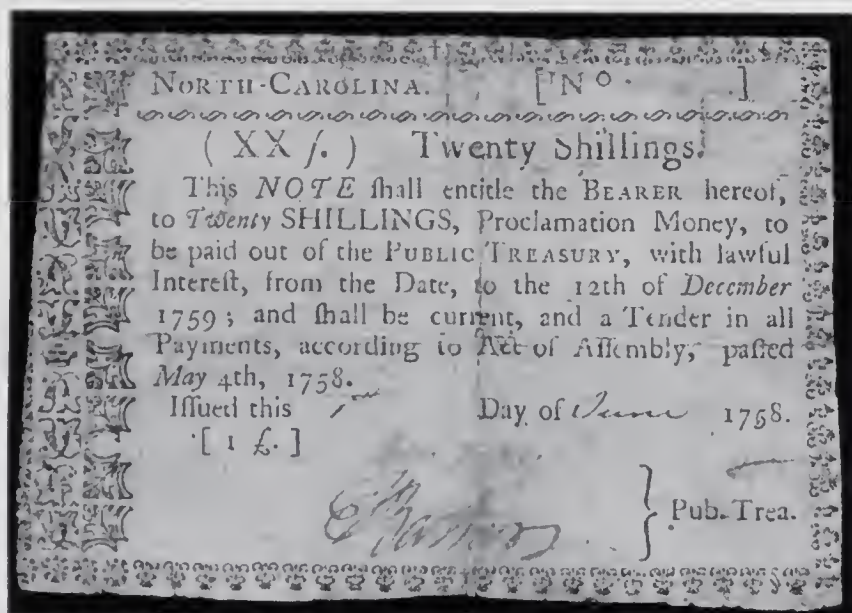 NORTH-CAROLINA. [No. .]
(XX ſ.) Twenty Shillings.
This NOTE ſhall entitle the BEARER hereof,
to Twenty SHILLINGS, Proclamation Money, to
be paid out of the PUBLIC TREASURY, with lawful
Intereſt, from the Date, to the 12th of December
1759; and ſhall be current, and a Tender in all
Payments, according to Act of Aſſembly, paſſed
May 4th, 1758.
Iſſued this Day of June 1758.
[1 £.]
} Pub. Trea.